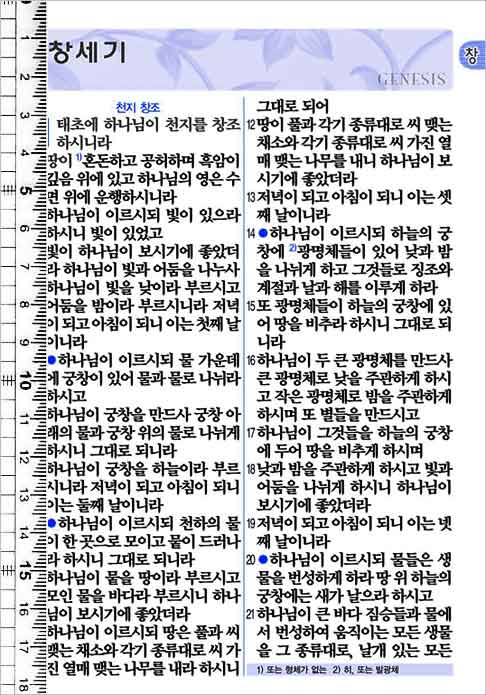 창세기
창
GENESIS
천지 창조
태초에 하나님이 천지를 창조
하시니라
땅이 1)혼돈하고 공허하며 흑암이
깊음 위에 있고 하나님의 영은 수
면 위에 운행하시니라
하나님이 이르시되 빛이 있으라
하시니 빛이 있었고
빛이 하나님이 보시기에 좋았더
라 하나님이 빛과 어둠을 나누사
하나님이 빛을 낮이라 부르시고
어둠을 밤이라 부르시니라 저녁
이 되고 아침이 되니 이는 첫째 날
이니라
●하나님이 이르시되 물 가운데
에 궁창이 있어 물과 물로 나뉘라
하시고
하나님이 궁창을 만드사 궁창 아
래의 물과 궁창 위의 물로 나뉘게
하시니 그대로 되니라
하나님이 궁창을 하늘이라 부르
시니라 저녁이 되고 아침이 되니
이는 둘째 날이니라
●하나님이 이르시되 천하의 물
이 한 곳으로 모이고 뭍이 드러나
라 하시니 그대로 되니라
하나님이 뭍을 땅이라 부르시고
모인 물을 바다라 부르시니 하나
님이 보시기에 좋았더라
하나님이 이르시되 땅은 풀과 씨
맺는 채소와 각기 종류대로 씨 가
진 열매 맺는 나무를 내라 하시니
그대로 되어
12 땅이 풀과 각기 종류대로 씨 맺는
채소와 각기 종류대로 씨 가진 열
매 맺는 나무를 내니 하나님이 보
시기에 좋았더라
13 저녁이 되고 아침이 되니 이는 셋
째 날이니라
14 ●하나님이 이르시되 하늘의 궁
창에 2)광명체들이 있어 낮과 밤
을 나뉘게 하고 그것들로 징조와
계절과 날과 해를 이루게 하라
15 또 광명체들이 하늘의 궁창에 있
어 땅을 비추라 하시니 그대로 되
니라
16 하나님이 두 큰 광명체를 만드사
큰 광명체로 낮을 주관하게 하시
고 작은 광명체로 밤을 주관하게
하시며 또 별들을 만드시고
17 하나님이 그것들을 하늘의 궁창
에 두어 땅을 비추게 하시며
18 낮과 밤을 주관하게 하시고 빛과
어둠을 나뉘게 하시니 하나님이
보시기에 좋았더라
19 저녁이 되고 아침이 되니 이는 넷
째 날이니라
20 ●하나님이 이르시되 물들은 생
물을 번성하게 하라 땅 위 하늘의
궁창에는 새가 날으라 하시고
21 하나님이 큰 바다 짐승들과 물에
서 번성하여 움직이는 모든 생물
을 그 종류대로, 날개 있는 모든
1) 또는 형체가 없는 2) 히, 또는 발광체
1
2
3
4
5
6
7
8
9
10
11
12
13
14
15
16
17
18